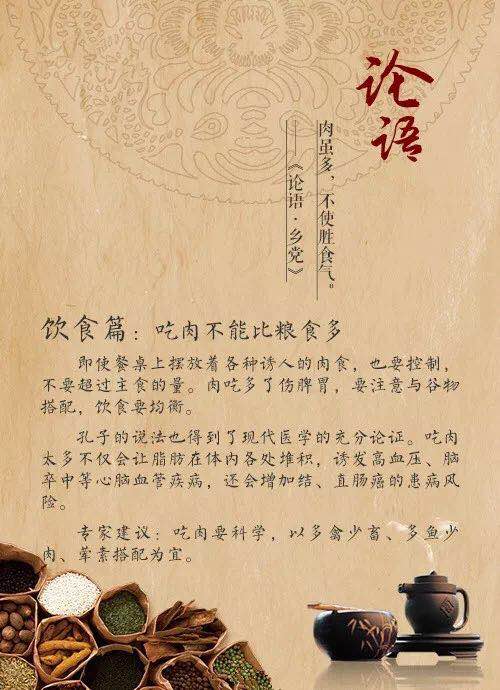 论语
肉虽多，不使胜食气。
——《论语·乡党》
饮食篇：吃肉不能比粮食多
即使餐桌上摆放着各种诱人的肉食，也要控制，
不要超过主食的量。肉吃多了伤脾胃，要注意与谷物
搭配，饮食要均衡。
孔子的说法也得到了现代医学的充分论证。吃肉
太多不仅会让脂肪在体内各处堆积，诱发高血压、脑
卒中等心脑血管疾病，还会增加结、直肠癌的患病风
险。
专家建议：吃肉要科学，以多禽少畜、多鱼少
肉、荤素搭配为宜。